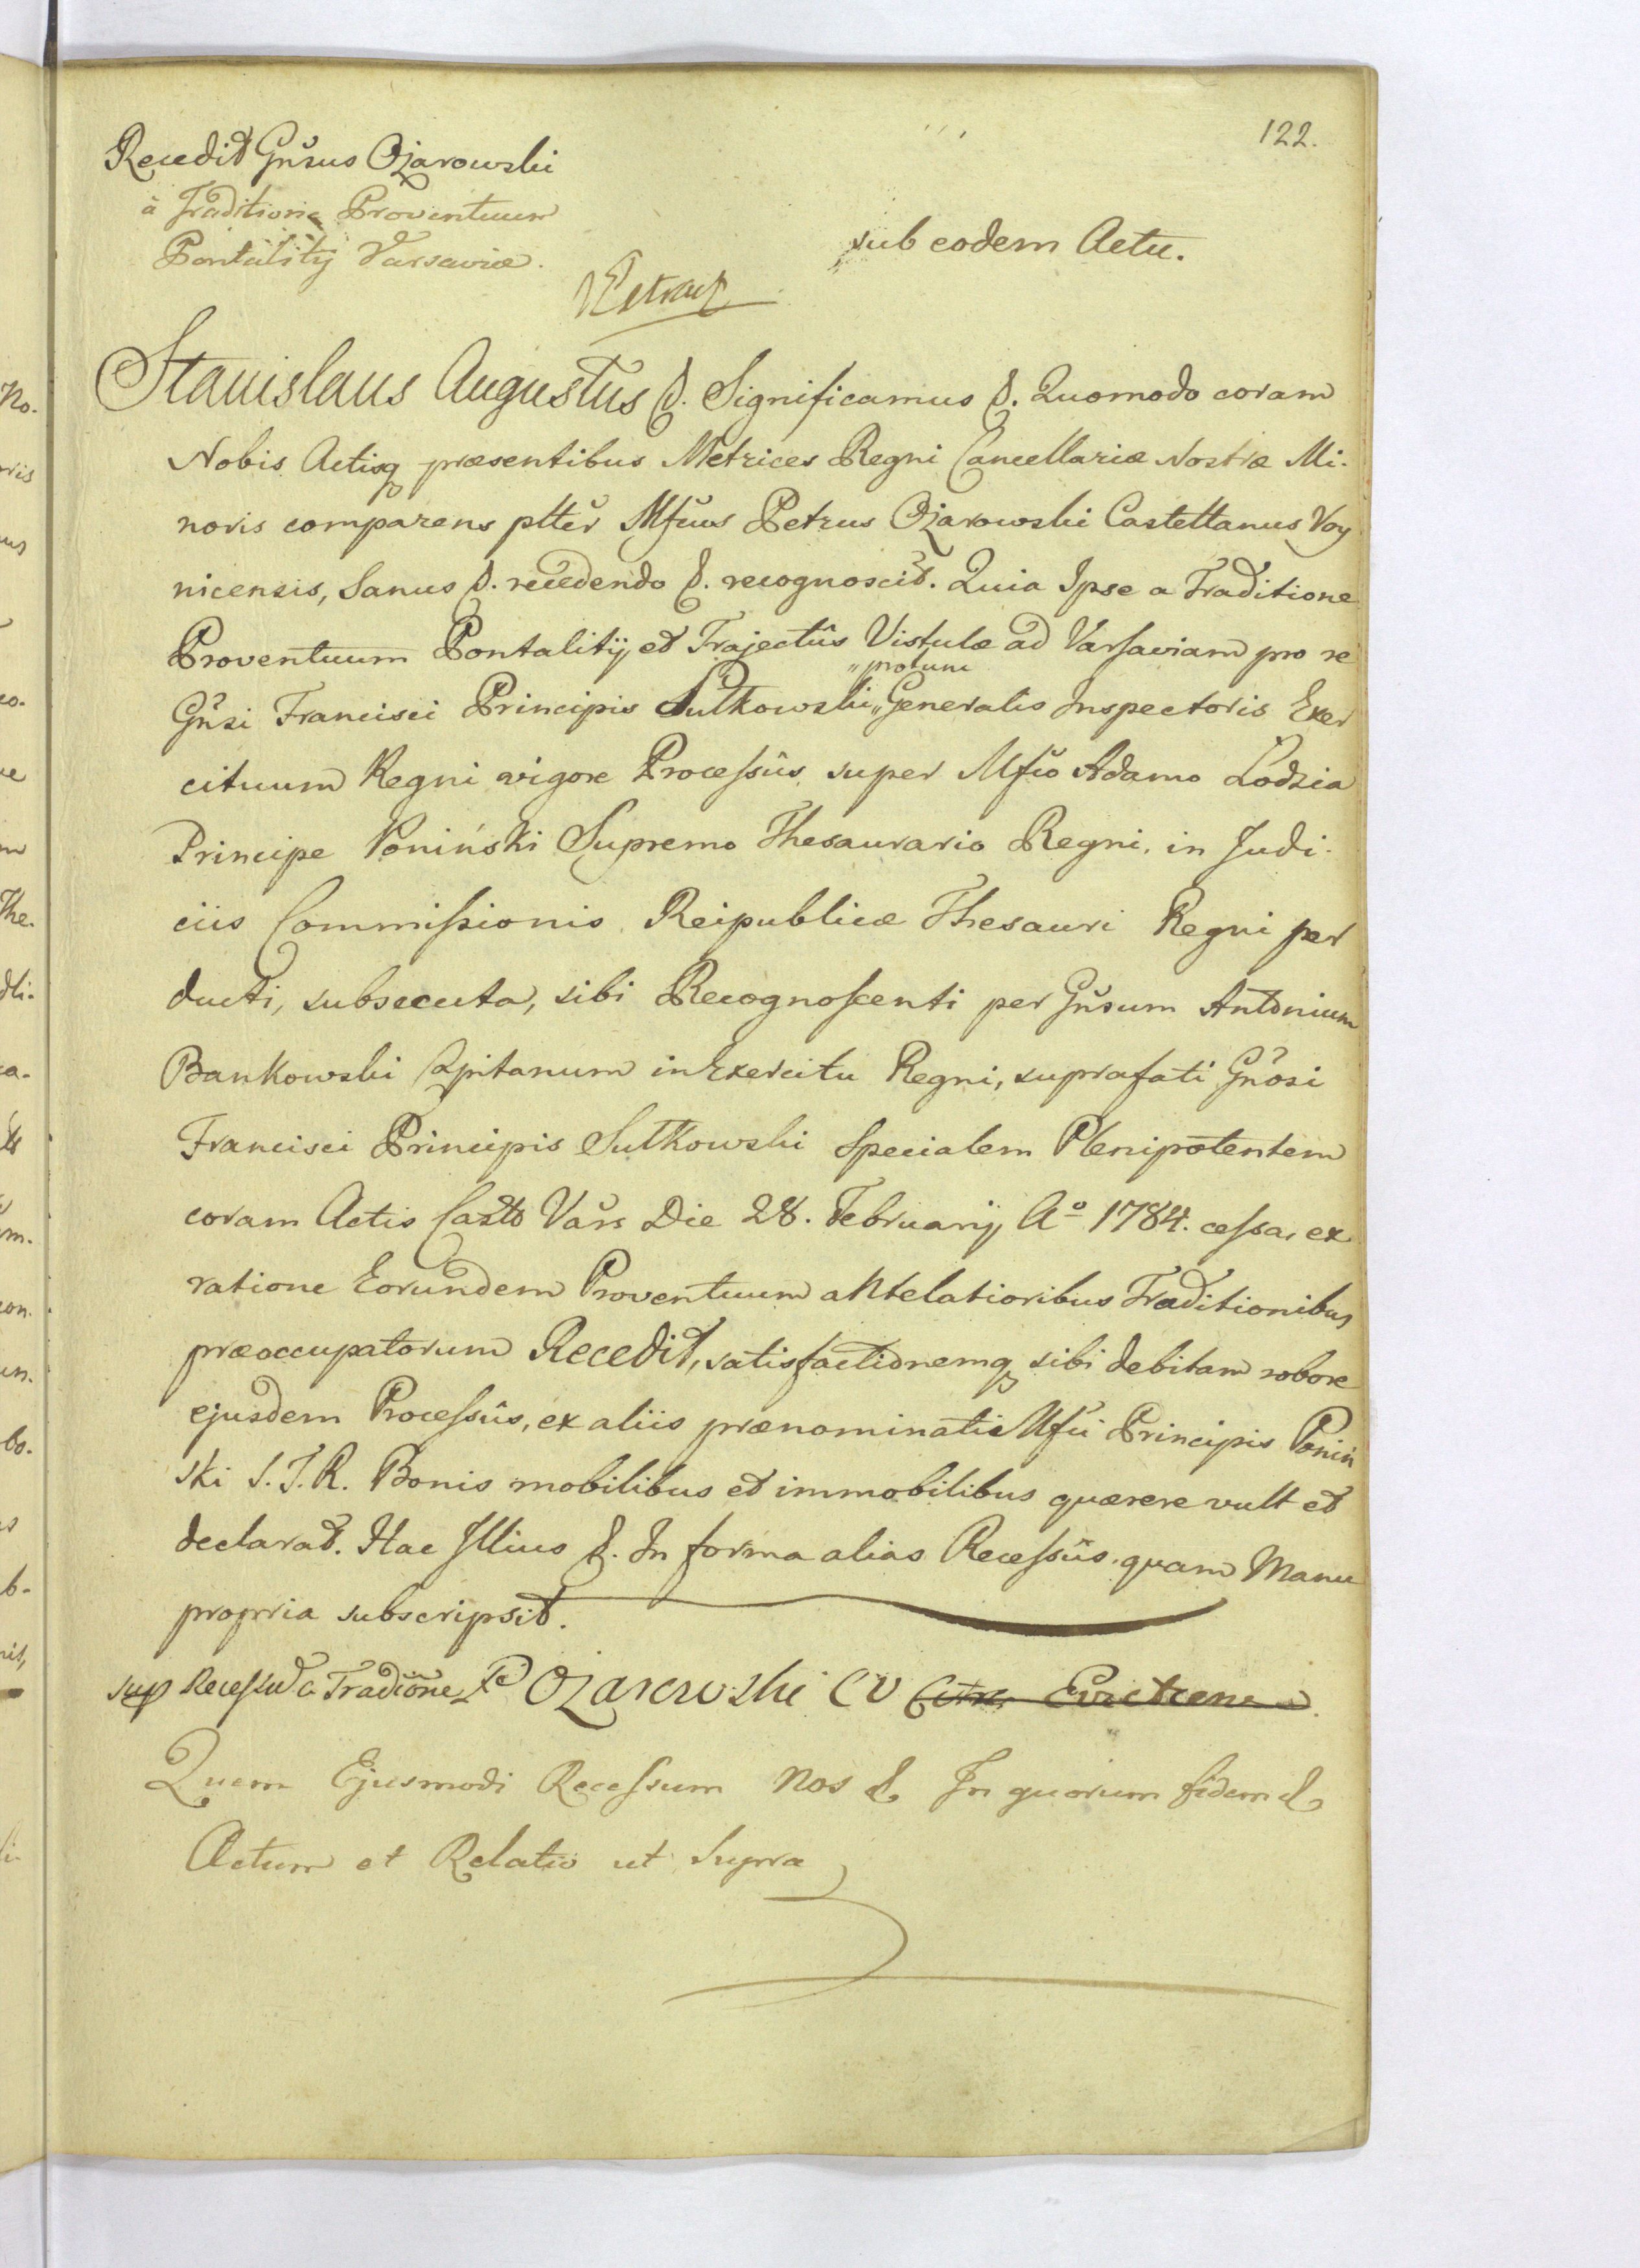 122.
Recedit Gnsus Ożarowski
à Traditione Proventuum
Pontalitij Varsaviæ.
sub eodem Actu.
Extract
Stanislaus Augustus &. Significamus &. Quomodo coram
Nobis Actisq præsentibus Metrices Regni Cancellariæ Nostræ Mi-
noris comparens plter Mfcus Petrus Ożarowski Castellanus Voy
nicensis, Sanus &. recedendo &. recognoscit. Quia Ipse a Traditione
Proventuum Pontalitij et Trajectûs Vistulæ ad Varsaviam pro re
Gnsi Francisci Principis Sułkowski "Generalis Inspectoris Exer
"protunc
cituum Regni vigore Processûs super Mfco Adamo Łodzia
Principe Poniński Supremo Thesaurario Regni, in Judi-
ciis Commissionis Reipublicæ Thesauri Regni per
ducti, subsecuta, sibi Recognoscenti per Gnsum Antonium
Bankowski Cpitanum in Exercitu Regni, suprafati Gnosi
Francisci Principis Sułkowski Specialem Plenipotentem
coram Actis Castr Vars Die 28. Februarij Aº 1784. cessa, ex
ratione Eorundem Proventuum antelatioribus Traditionibus
præoccupatorum Recedit, satisfactionemq sibi debitam robore
ejusdem Processûs, ex aliis prænominatis Mfci Principis Poniń
ski S. T. R. Bonis mobilibus et immobilibus quærere vult et
declarat. Hac Illius &. In forma alias Recessûs. quam Manu
propria subscripsit.
sup Recessu a Tradiõne P Ożarowski CV Citra Evictiene
Quem Ejusmodi Recessum Nos & In quorum fidem &
Actum et Relatio ut Supra